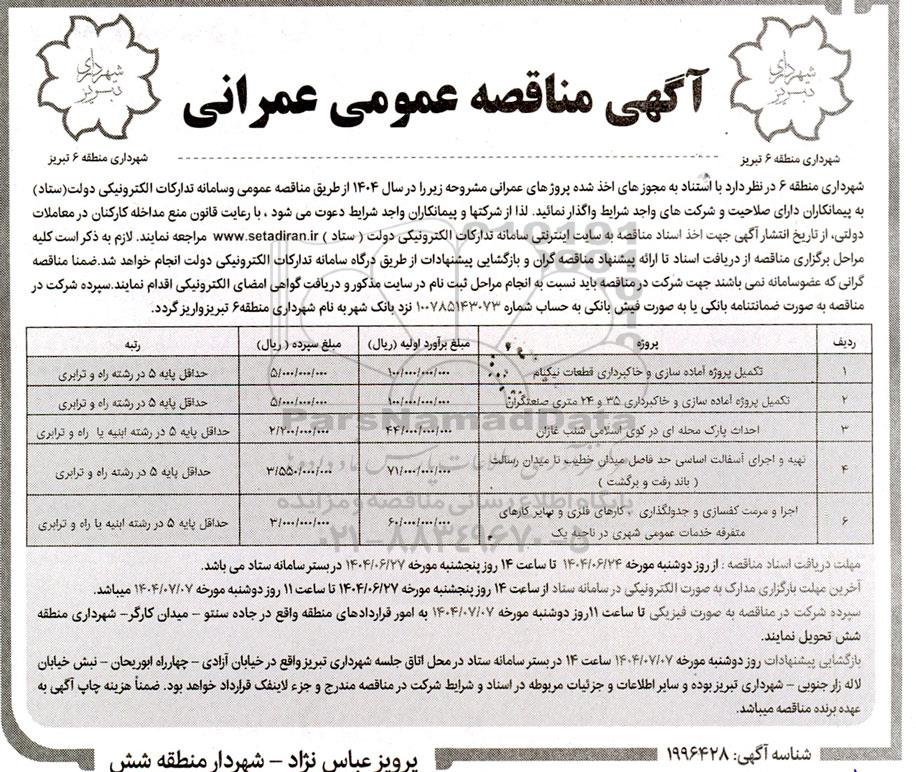 شهرداری تبریز
شهرداری تبریز
آگهی مناقصه عمومی عمرانی
شهرداری منطقه ۶ تبریز
شهرداری منطقه ۶ تبریز
شهرداری منطقه ۶ در نظر دارد با استناد به مجوز های اخذ شده پروژ های عمرانی مشروحه زیر را در سال ۱۴۰۴ از طریق مناقصه عمومی وسامانه تدارکات الکترونیکی دولت(ستاد)
به پیمانکاران دارای صلاحیت و شرکت های واجد شرایط واگذار نمائید. لذا از شرکتها و پیمانکاران واجد شرایط دعوت می شود ، با رعایت قانون منع مداخله کارکنان در معاملات
دولتی، از تاریخ انتشار آگهی جهت اخذ اسناد مناقصه به سایت اینترنتی سامانه تدارکات الکترونیکی دولت ( ستاد ) www.setadiran.ir مراجعه نمایند. لازم به ذکر است کلیه
مراحل برگزاری مناقصه از دریافت اسناد تا ارائه پیشنهاد مناقصه گران و بازگشایی پیشنهادات از طریق درگاه سامانه تدارکات الکترونیکی دولت انجام خواهد شد.ضمنا مناقصه
گرانی که عضوسامانه نمی باشند جهت شرکت در مناقصه باید نسبت به انجام مراحل ثبت نام در سایت مذکور و دریافت گواهی امضای الکترونیکی اقدام نمایند.سپرده شرکت در
مناقصه به صورت ضمانتنامه بانکی یا به صورت فیش بانکی به حساب شماره ۱۰۰۷۸۵۱۴۳۰۷۳ نزد بانک شهر به نام شهرداری منطقه۶ تبریزواریز گردد.
ردیف پروژه مبلغ برآورد اولیه (ریال) مبلغ سپرده ( ریال) رتبه
۱ تکمیل پروژه آماده سازی و خاکبرداری قطعات نیکنام ۱۰۰/۰۰۰/۰۰۰/۰۰۰ ۵/۰۰۰/۰۰۰/۰۰۰ حداقل پایه ۵ در رشته راه و ترابری
۲ تکمیل پروژه آماده سازی و خاکبرداری ۳۵ و ۲۴ متری صنعتگران ۱۰۰/۰۰۰/۰۰۰/۰۰۰ ۵/۰۰۰/۰۰۰/۰۰۰ حداقل پایه ۵ در رشته راه و ترابری
۳ احداث پارک محله ای در کوی اسلامی شنب غازان ۴۴/۰۰۰/۰۰۰/۰۰۰ ۲/۲۰۰/۰۰۰/۰۰۰ حداقل پایه ۵ در رشته ابنیه یا راه و ترابری
۴ تهیه و اجرای آسفالت اساسی حد فاصل میدان خطیب تا میدان رسالت ۷۱/۰۰۰/۰۰۰/۰۰۰ ۳/۵۵۰/۰۰۰/۰۰۰ حداقل پایه ۵ در رشته راه و ترابری
( باند رفت و برگشت )
۶ اجرا و مرمت کفسازی و جدولگذاری ، کارهای فلزی و سایر کارهای ۶۰/۰۰۰/۰۰۰/۰۰۰ ۳/۰۰۰/۰۰۰/۰۰۰ حداقل پایه ۵ در رشته ابنیه یا راه و ترابری
متفرقه خدمات عمومی شهری در ناحیه یک
ParsNamadData
پایگاه اطلاع رسانی مناقصه و مزایده
۰۲۱-۸۸۳۴۹۶۷۰-۵
مهلت دریافت اسناد مناقصه : از روز دوشنبه مورخه ۱۴۰۴/۰۶/۲۴ تا ساعت ۱۴ روز پنجشنبه مورخه ۱۴۰۴/۰۶/۲۷ در بستر سامانه ستاد می باشد.
آخرین مهلت بارگزاری مدارک به صورت الکترونیکی در سامانه ستاد از ساعت ۱۴ روز پنجشنبه مورخه ۱۴۰۴/۰۶/۲۷ تا ساعت ۱۱ روز دوشنبه مورخه ۱۴۰۴/۰۷/۰۷ میباشد.
سپرده شرکت در مناقصه به صورت فیزیکی تا ساعت ۱۱روز دوشنبه مورخه ۱۴۰۴/۰۷/۰۷ به امور قراردادهای منطقه واقع در جاده سنتو – میدان کارگر– شهرداری منطقه
شش تحویل نمایند.
بازگشایی پیشنهادات روز دوشنبه مورخه ۱۴۰۴/۰۷/۰۷ ساعت ۱۴ در بستر سامانه ستاد در محل اتاق جلسه شهرداری تبریز واقع در خیابان آزادی – چهارراه ابوریحان – نبش خیابان
لاله زار جنوبی – شهرداری تبریز بوده و سایر اطلاعات و جزئیات مربوطه در اسناد و شرایط شرکت در مناقصه مندرج و جزء لاینفک قرارداد خواهد بود. ضمناً هزینه چاپ آگهی به
عهده برنده مناقصه میباشد.
شناسه آگهی: ۱۹۹۶۴۲۸
پرویز عباس نژاد – شهردار منطقه شش